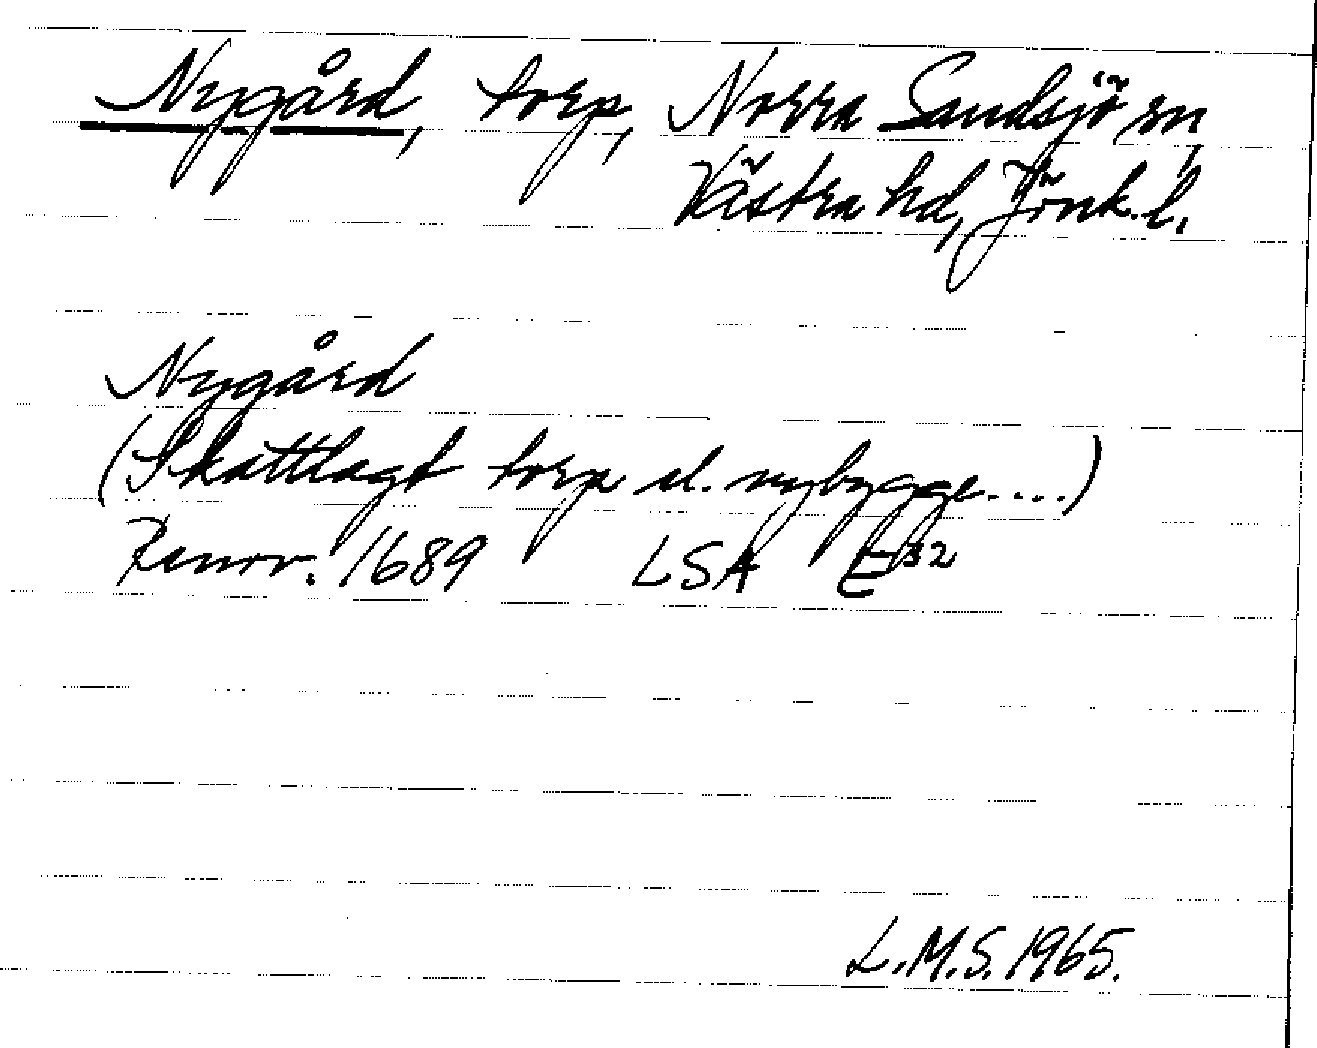 Nygård, torp, Norra Sandsjö sn,
Västra hd, Jönk. l.
Nygård
(Skattlagt torp el. nybygge....)
Renov. 1689 LSA E 32
L.M.S. 1965.